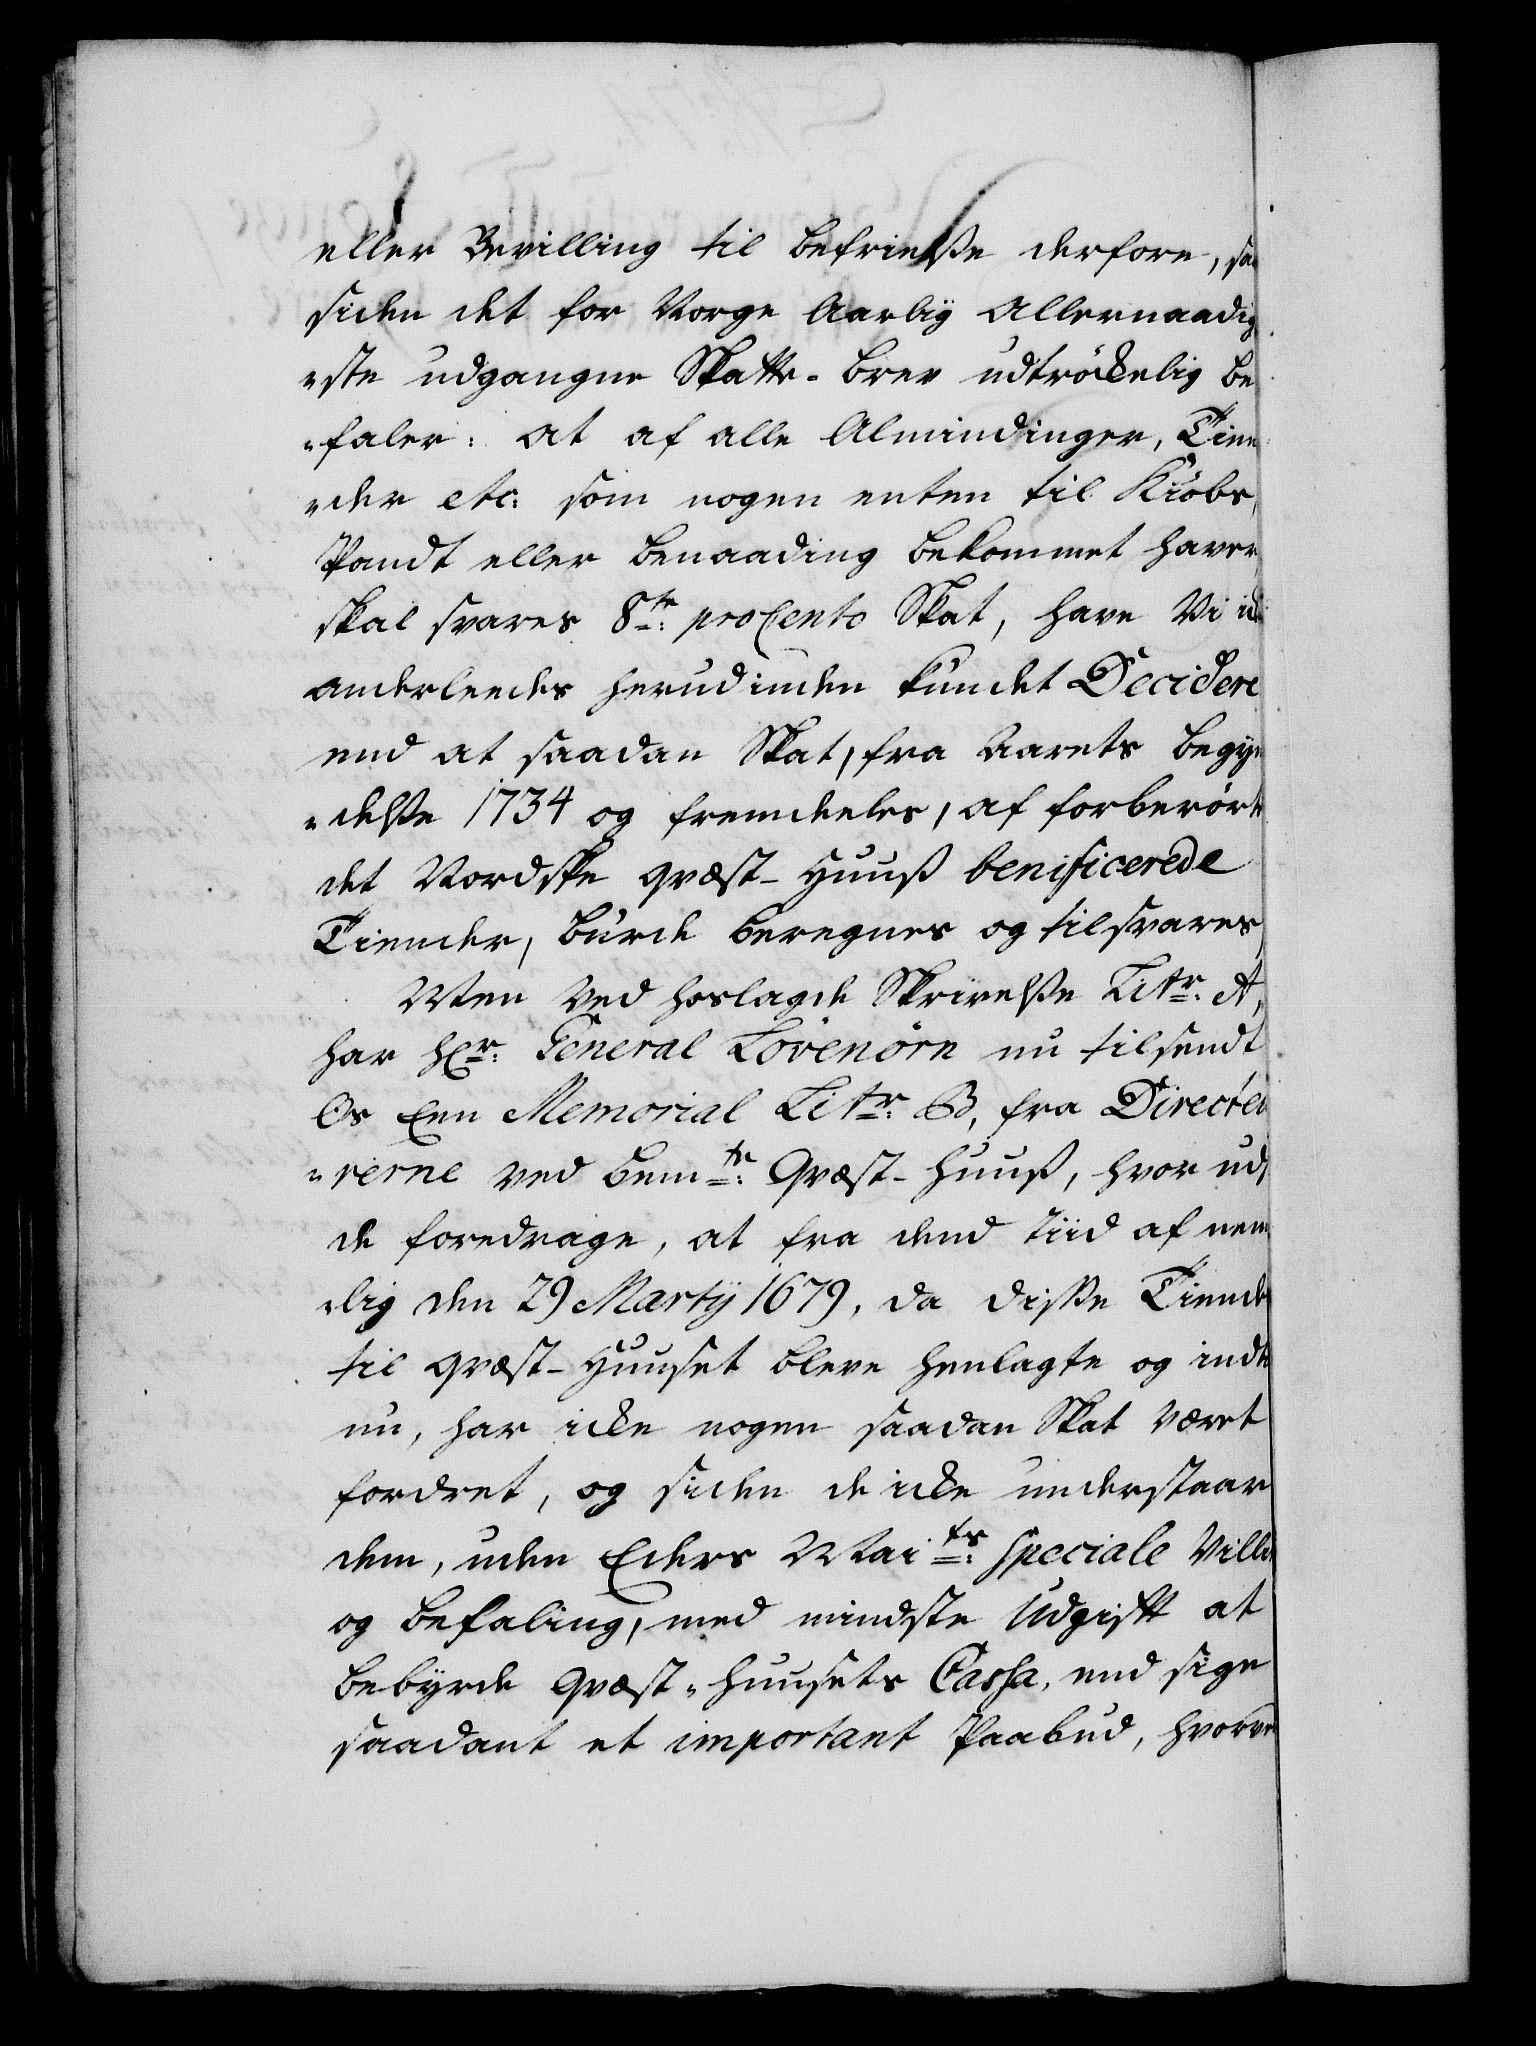 eller Bevilling til befrielsse derfore, saa
siden det for Norge Aarlig Allernaadig
"ste udgangne Skatte-brev udtröckelig be
"faler: at af alle Almindinger, Tien
"der etc: som nogen enten til Kiöbs,
Pandt eller benaading bekommet haver,
skal svares 8te: pro Cento Skat, have Vi ick
anderleedes herudinden kundet Decidere
end at saadan Skat, fra Aarets begyn
"delsse 1734 og fremdeeles, af forberört
det Nordske Qvæst-Huuss benificerede
Tiender, burde beregnes og tilsvares,
Men ved hoslagde Skrivelsse Litr: A,
har Hr: General Lövenörn nu tilsendt
Os Een Memorial Litr: B, fra Directeu
"rerne ved bemte: Qvæst-Huuss, hvor ud,
de foredrage, at fra dend tiid af nem
"lig den 29 Martij 1679, da disse Tiende
til Qvæst-Huuset bleve henlagte og indtil
nu, har icke nogen saadan Skat været
fordret, og siden de icke understaar
dem, uden Eders Maits: speciale Villie
og befaling, med mindste Udgift at
bebyrde Qvæst-Huusets Cassa, end sige
saadant et important Paabud, hvorve